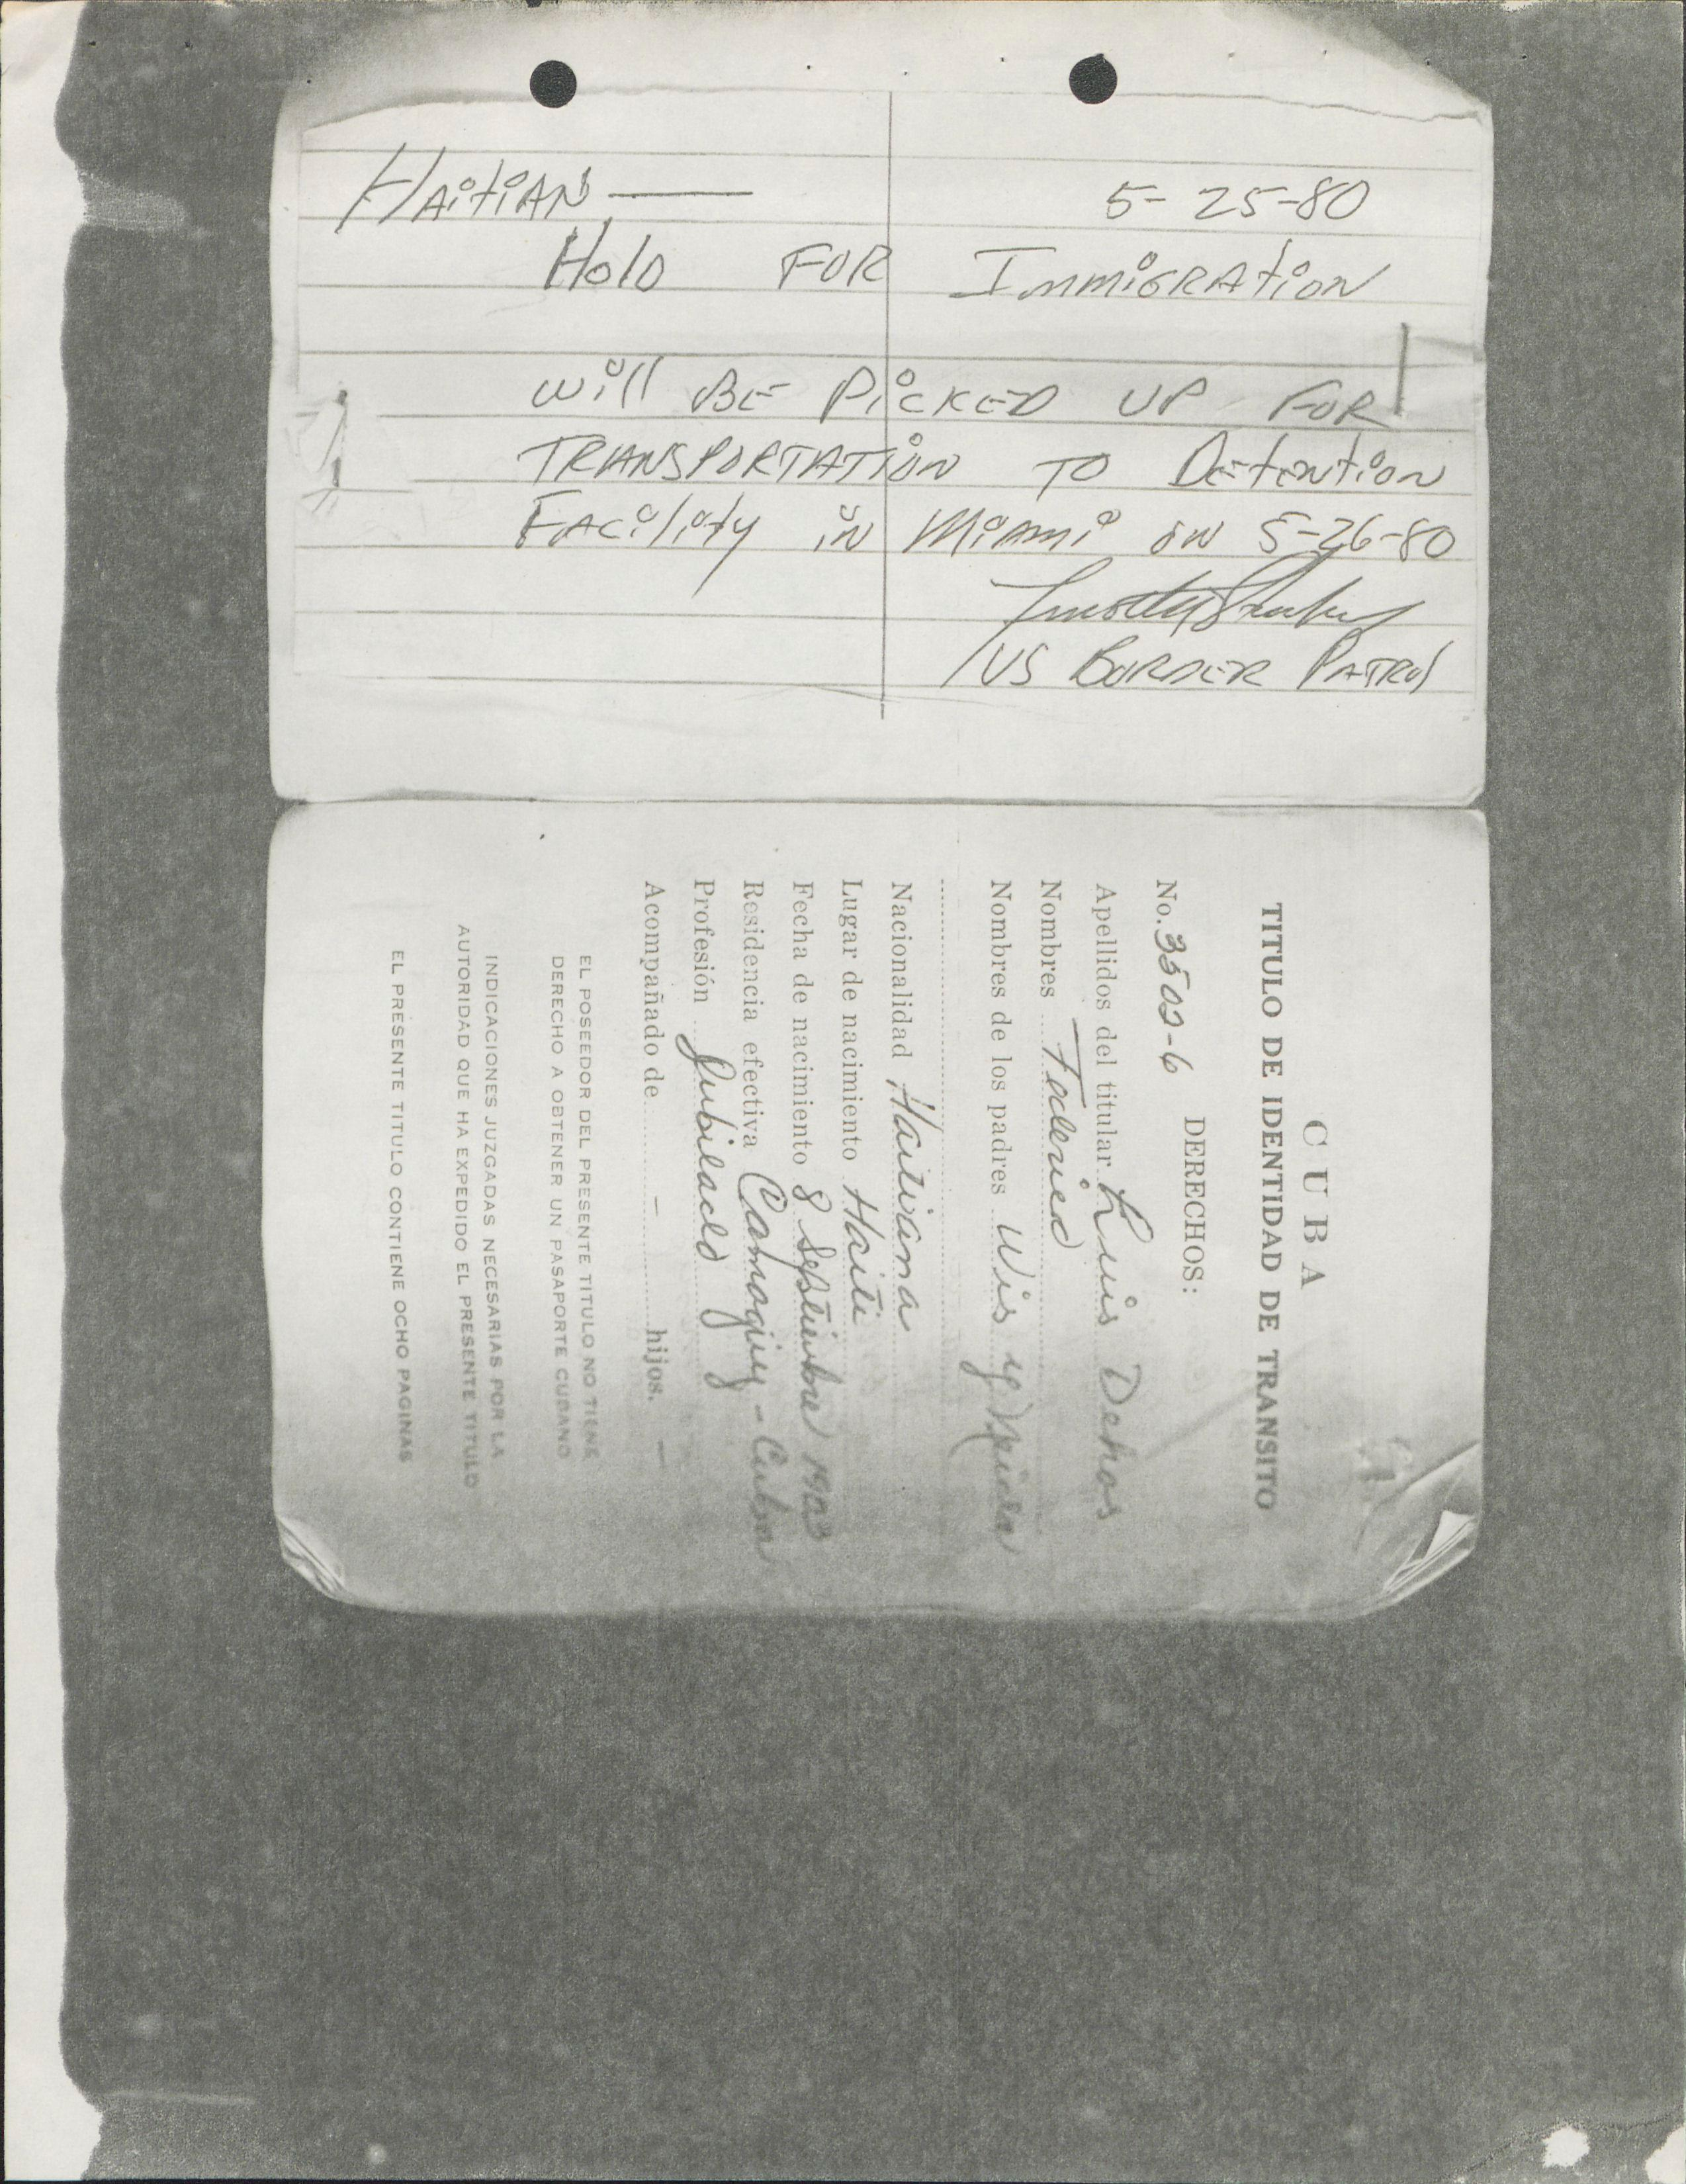 HAITIAN — 5-25-80
HOLD FOR IMMIGRATION
will BE PICKED UP FOR
TRANSPORTATION TO DETENTION
FACILITY IN MIAMI ON 5-26-80
US BORDER PATROL
CUBA
TITULO DE IDENTIDAD DE TRANSITO
DERECHOS:
No. 3502-6
Apellidos del titular Luis Dehos
Nombres Federico
Nombres de los padres Wis y
Nacionalidad Haitiana
Lugar de nacimiento Haiti
Fecha de nacimiento 8 Septiembre 1903
Residencia efectiva Camaguey - Cuba
Profesión Jubilado
Acompañado de - hijos. -
EL POSEEDOR DEL PRESENTE TITULO NO TIENE
DERECHO A OBTENER UN PASAPORTE CUBANO
INDICACIONES JUZGADAS NECESARIAS POR LA
AUTORIDAD QUE HA EXPEDIDO EL PRESENTE TITULO
EL PRESENTE TITULO CONTIENE OCHO PAGINAS